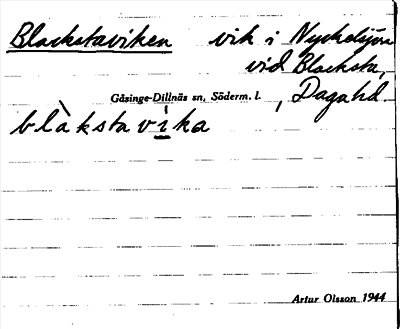 Blackstaviken vik i Nyckelsjön
vid Blacksta,
Gåsinge-Dillnäs sn, Söderm. l. , Daga hd.
blàkstavìka
Artur Olsson 1944